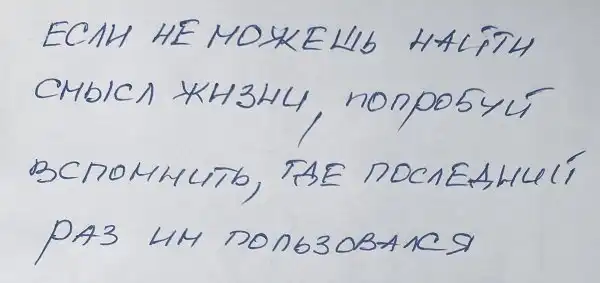 ЕСЛИ НЕ МОЖЕШЬ НАЙТИ
СМЫСЛ ЖИЗНИ, ПОПРОБУЙ
ВСПОМНИТЬ, ГДЕ ПОСЛЕДНИЙ
РАЗ ИМ ПОЛЬЗОВАЛСЯ